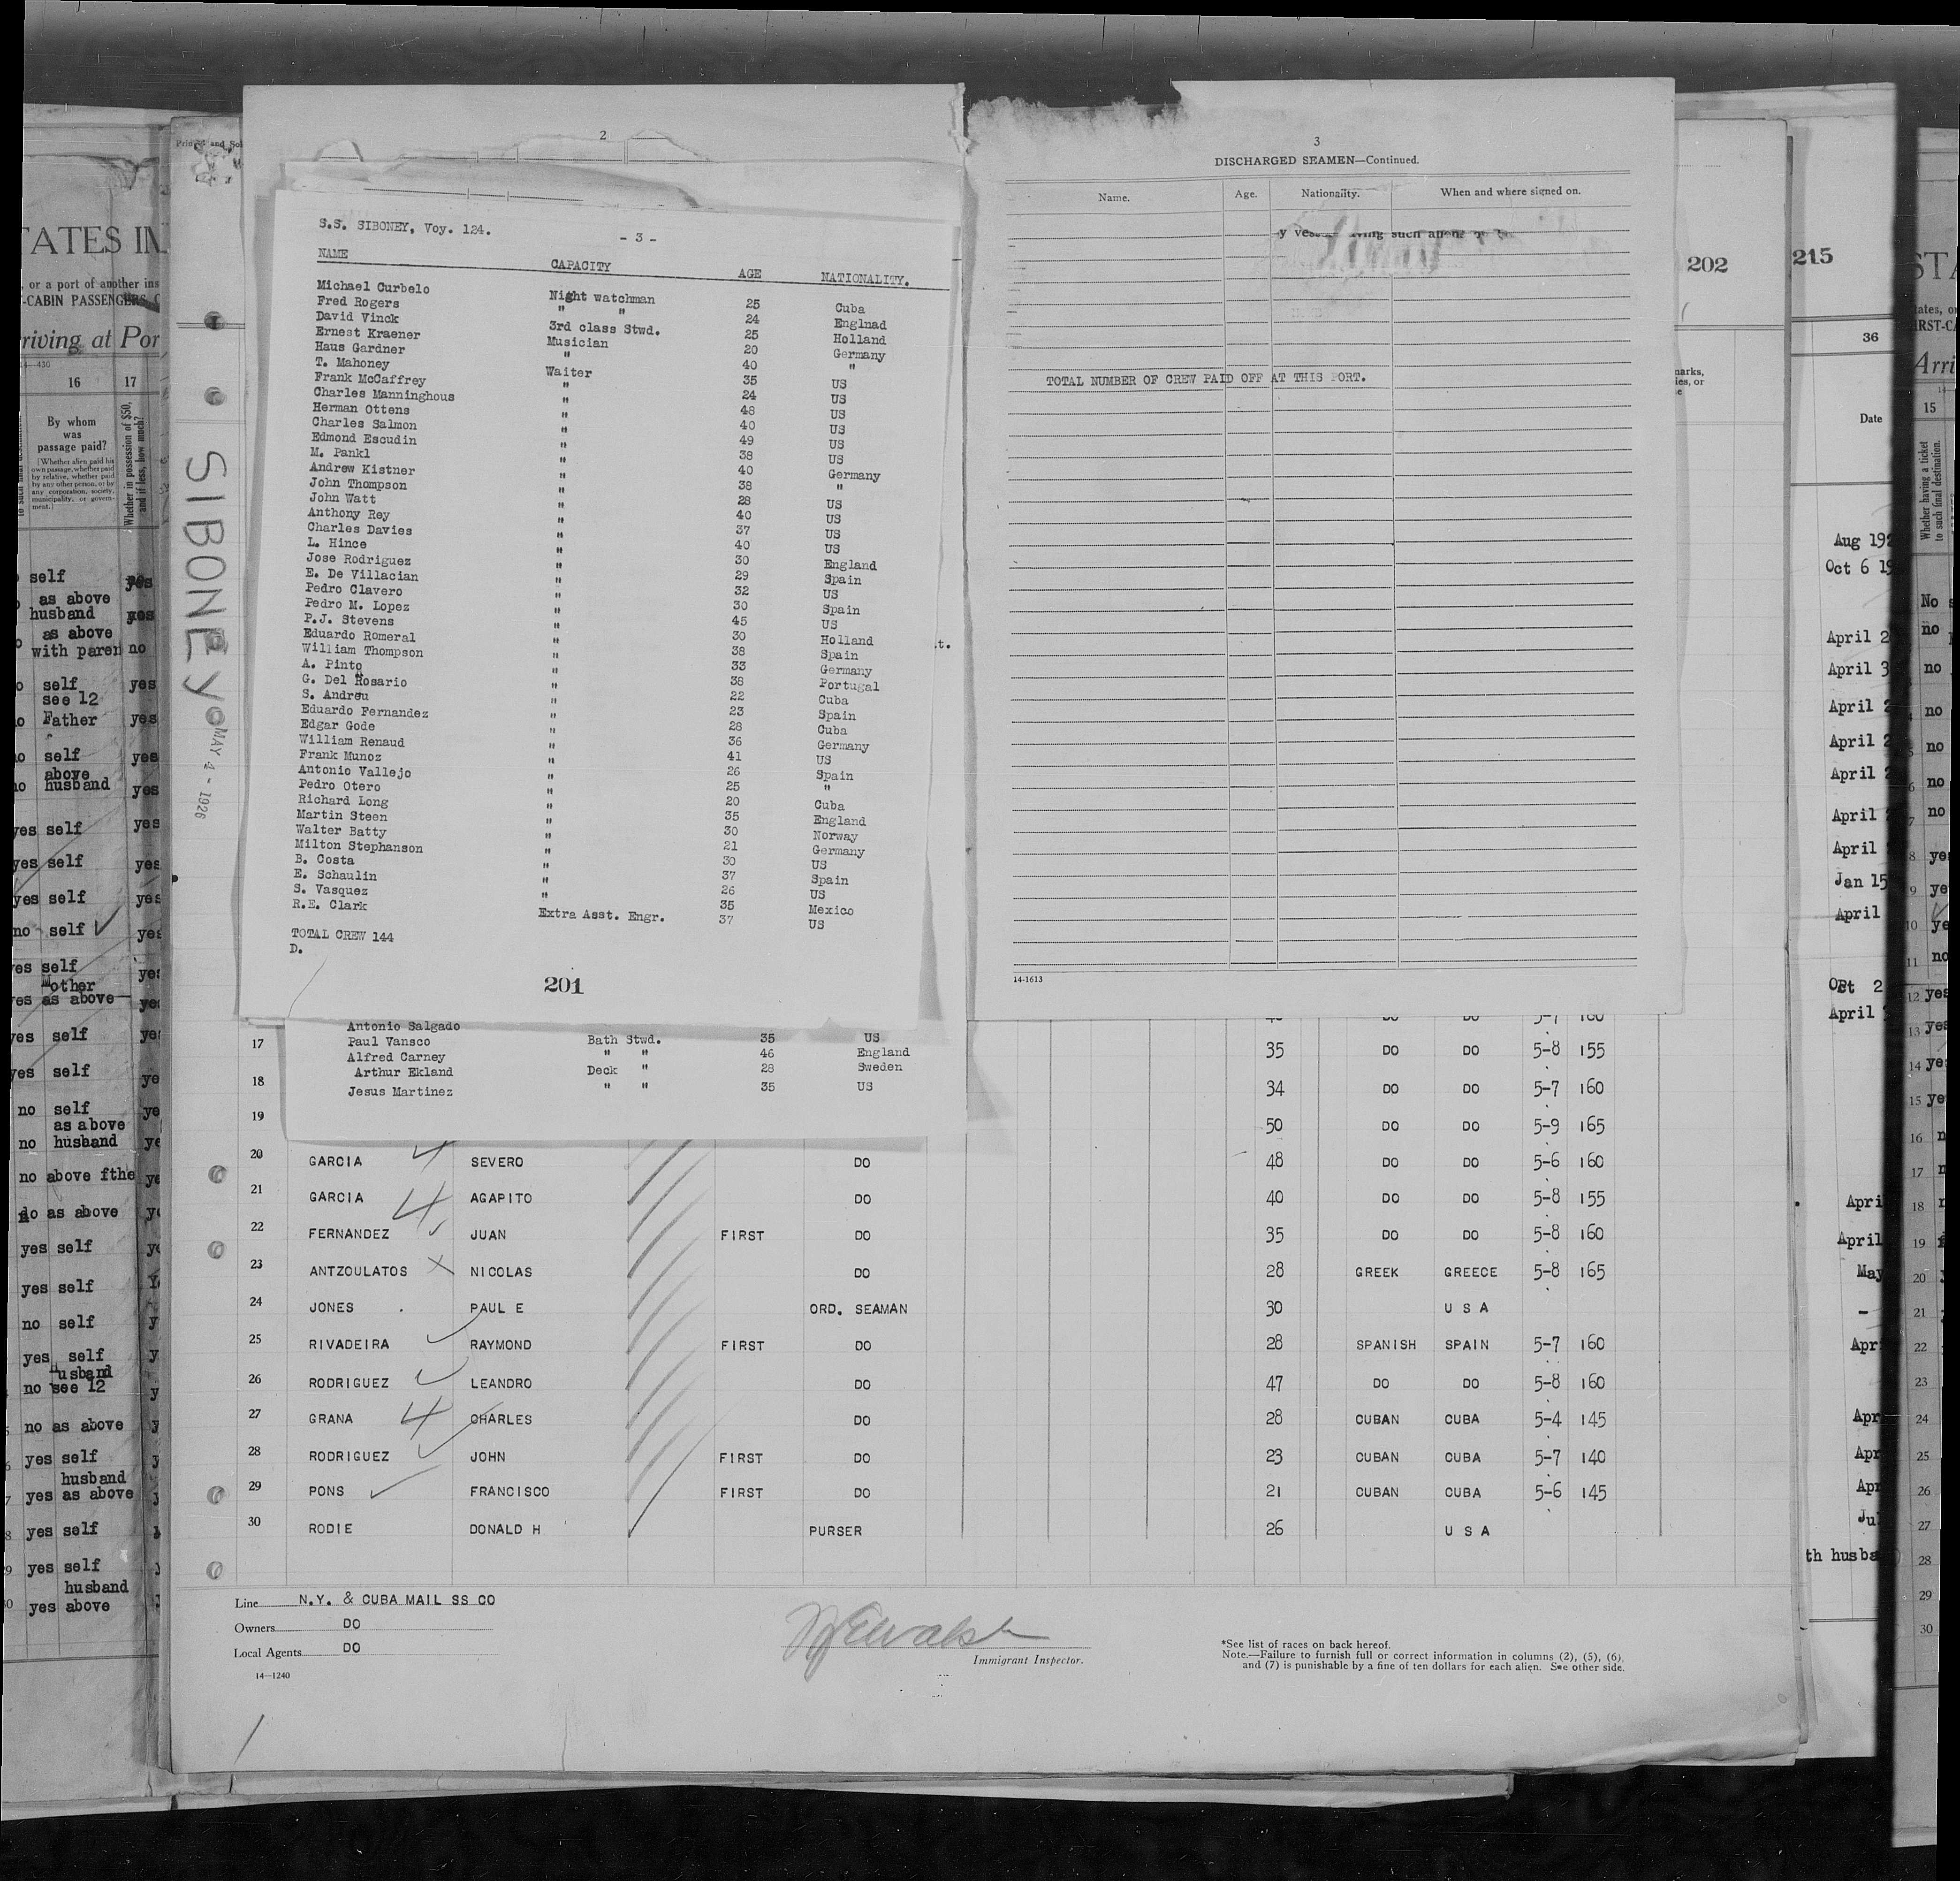 TATES IN
, or a port of another ins
-CABIN PASSENGERS
riving at Por
16 17
By whom
was
passage paid?
(Whether alien paid his
own passage, whether paid
by relative, whether paid
by any other person, or by
any corporation, society,
municipality, or govern-
ment.)
Whether in possession of $50,
and if less, how much?
self yes
as above
husband yes
as above
with paren no
self yes
see 12
Father yes
self yes
above
husband yes
yes self yes
yes self yes
yes self yes
no self yes
yes self yes
Mother
yes as above yes
yes self yes
yes self ye
no self ye
as above
no husband ye
no above fthe ye
do as above
yes self
yes self
no self
yes self
Husband
no see 12
no as above
yes self
husband
yes as above
yes self
yes self
husband
yes above
SIBONEY
MAY 4 - 1926
2
S.S. SIBONEY, Voy. 124.
- 3 -
NAME CAPACITY AGE NATIONALITY.
Michael Curbelo Night watchman 25 Cuba
Fred Rogers " " 24 Englnad
David Vinck 3rd class Stwd. 25 Holland
Ernest Kraener Musician 20 Germany
Haus Gardner " 40 "
T. Mahoney Waiter 35 US
Frank McCaffrey " 24 US
Charles Manninghous " 48 US
Herman Ottens " 40 US
Charles Salmon " 49 US
Edmond Escudin " 38 US
M. Pankl " 40 Germany
Andrew Kistner " 38 "
John Thompson " 28 US
John Watt " 40 US
Anthony Rey " 37 US
Charles Davies " 40 US
L. Hince " 30 England
Jose Rodriguez " 29 Spain
E. De Villacian " 32 US
Pedro Clavero " 30 Spain
Pedro M. Lopez " 45 US
P.J. Stevens " 30 Holland
Eduardo Romeral " 38 Spain
William Thompson " 33 Germany
A. Pinto " 38 Portugal
G. Del Rosario " 22 Cuba
S. Andreu " 23 Spain
Eduardo Fernandez " 28 Cuba
Edgar Gode " 36 Germany
William Renaud " 41 US
Frank Munoz " 26 Spain
Antonio Vallejo " 25 "
Pedro Otero " 20 Cuba
Richard Long " 35 England
Martin Steen " 30 Norway
Walter Batty " 21 Germany
Milton Stephanson " 30 US
B. Costa " 37 Spain
E. Schaulin " 26 US
S. Vasquez " 35 Mexico
R.E. Clark Extra Asst. Engr. 37 US
TOTAL CREW 144
D.
201
Antonio Salgado
Paul Vansco Bath Stwd. 35 US
Alfred Carney " " 46 England
Arthur Ekland Deck " 28 Sweden
Jesus Martinez " " 35 US
3
DISCHARGED SEAMEN—Continued.
Name. Age. Nationality. When and where signed on.
TOTAL NUMBER OF CREW PAID OFF AT THIS PORT.
14-1613
202
17 35 DO DO 5-8 155
18 34 DO DO 5-7 160
19 50 DO DO 5-9 165
20 GARCIA SEVERO DO 48 DO DO 5-6 160
21 GARCIA AGAPITO DO 40 DO DO 5-8 155
22 FERNANDEZ JUAN FIRST DO 35 DO DO 5-8 160
23 ANTZOULATOS NICOLAS DO 28 GREEK GREECE 5-8 165
24 JONES PAUL E ORD. SEAMAN 30 U S A
25 RIVADEIRA RAYMOND FIRST DO 28 SPANISH SPAIN 5-7 160
26 RODRIGUEZ LEANDRO DO 47 DO DO 5-8 160
27 GRANA CHARLES DO 28 CUBAN CUBA 5-4 145
28 RODRIGUEZ JOHN FIRST DO 23 CUBAN CUBA 5-7 140
29 PONS FRANCISCO FIRST DO 21 CUBAN CUBA 5-6 145
30 RODIE DONALD H PURSER 26 U S A
Line N.Y. & CUBA MAIL SS CO
Owners DO
Local Agents DO
14—1240
Immigrant Inspector.
*See list of races on back hereof.
Note.—Failure to furnish full or correct information in columns (2), (5), (6),
and (7) is punishable by a fine of ten dollars for each alien. See other side.
215
36
Date
Aug 192
Oct 6 19
April 2
April 3
April 2
April 2
April 2
April
April
Jan 15
April
April
Apri
April
May
Apr
Apr
Apr
Apr
Jul
th husba
STA
Arri
15
Whether having a ticket
to such final destination.
No
no
no
no
no
no
no
8
9
10
11 no
12 yes
13 yes
14 yes
15 ye
16
17
18
19
20
21
22
23
24
25
26
27
28
29
30